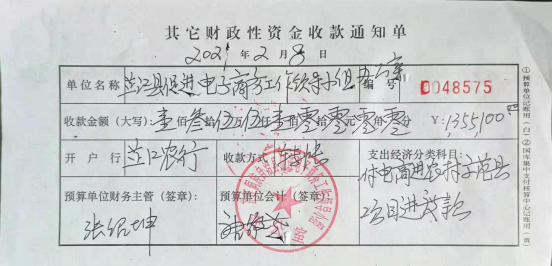 其它财政性资金收款通知单
2021年2月8日
单位名称 芷江县促进电子商务工作领导小组办公室 编号 0048575
收款金额（大写）：壹佰叁拾伍万伍仟壹佰零拾零元零角零分 ¥：1355,100.00
开户行 芷江农行 收款方式 转帐 支出经济分类科目：
付电商进农村示范县
项目进度款
预算单位财务主管（签章）： 预算单位会计（签章）：
张绍坤
①预算单位记账用（白）②国库集中支付核算中心记账用（黄）